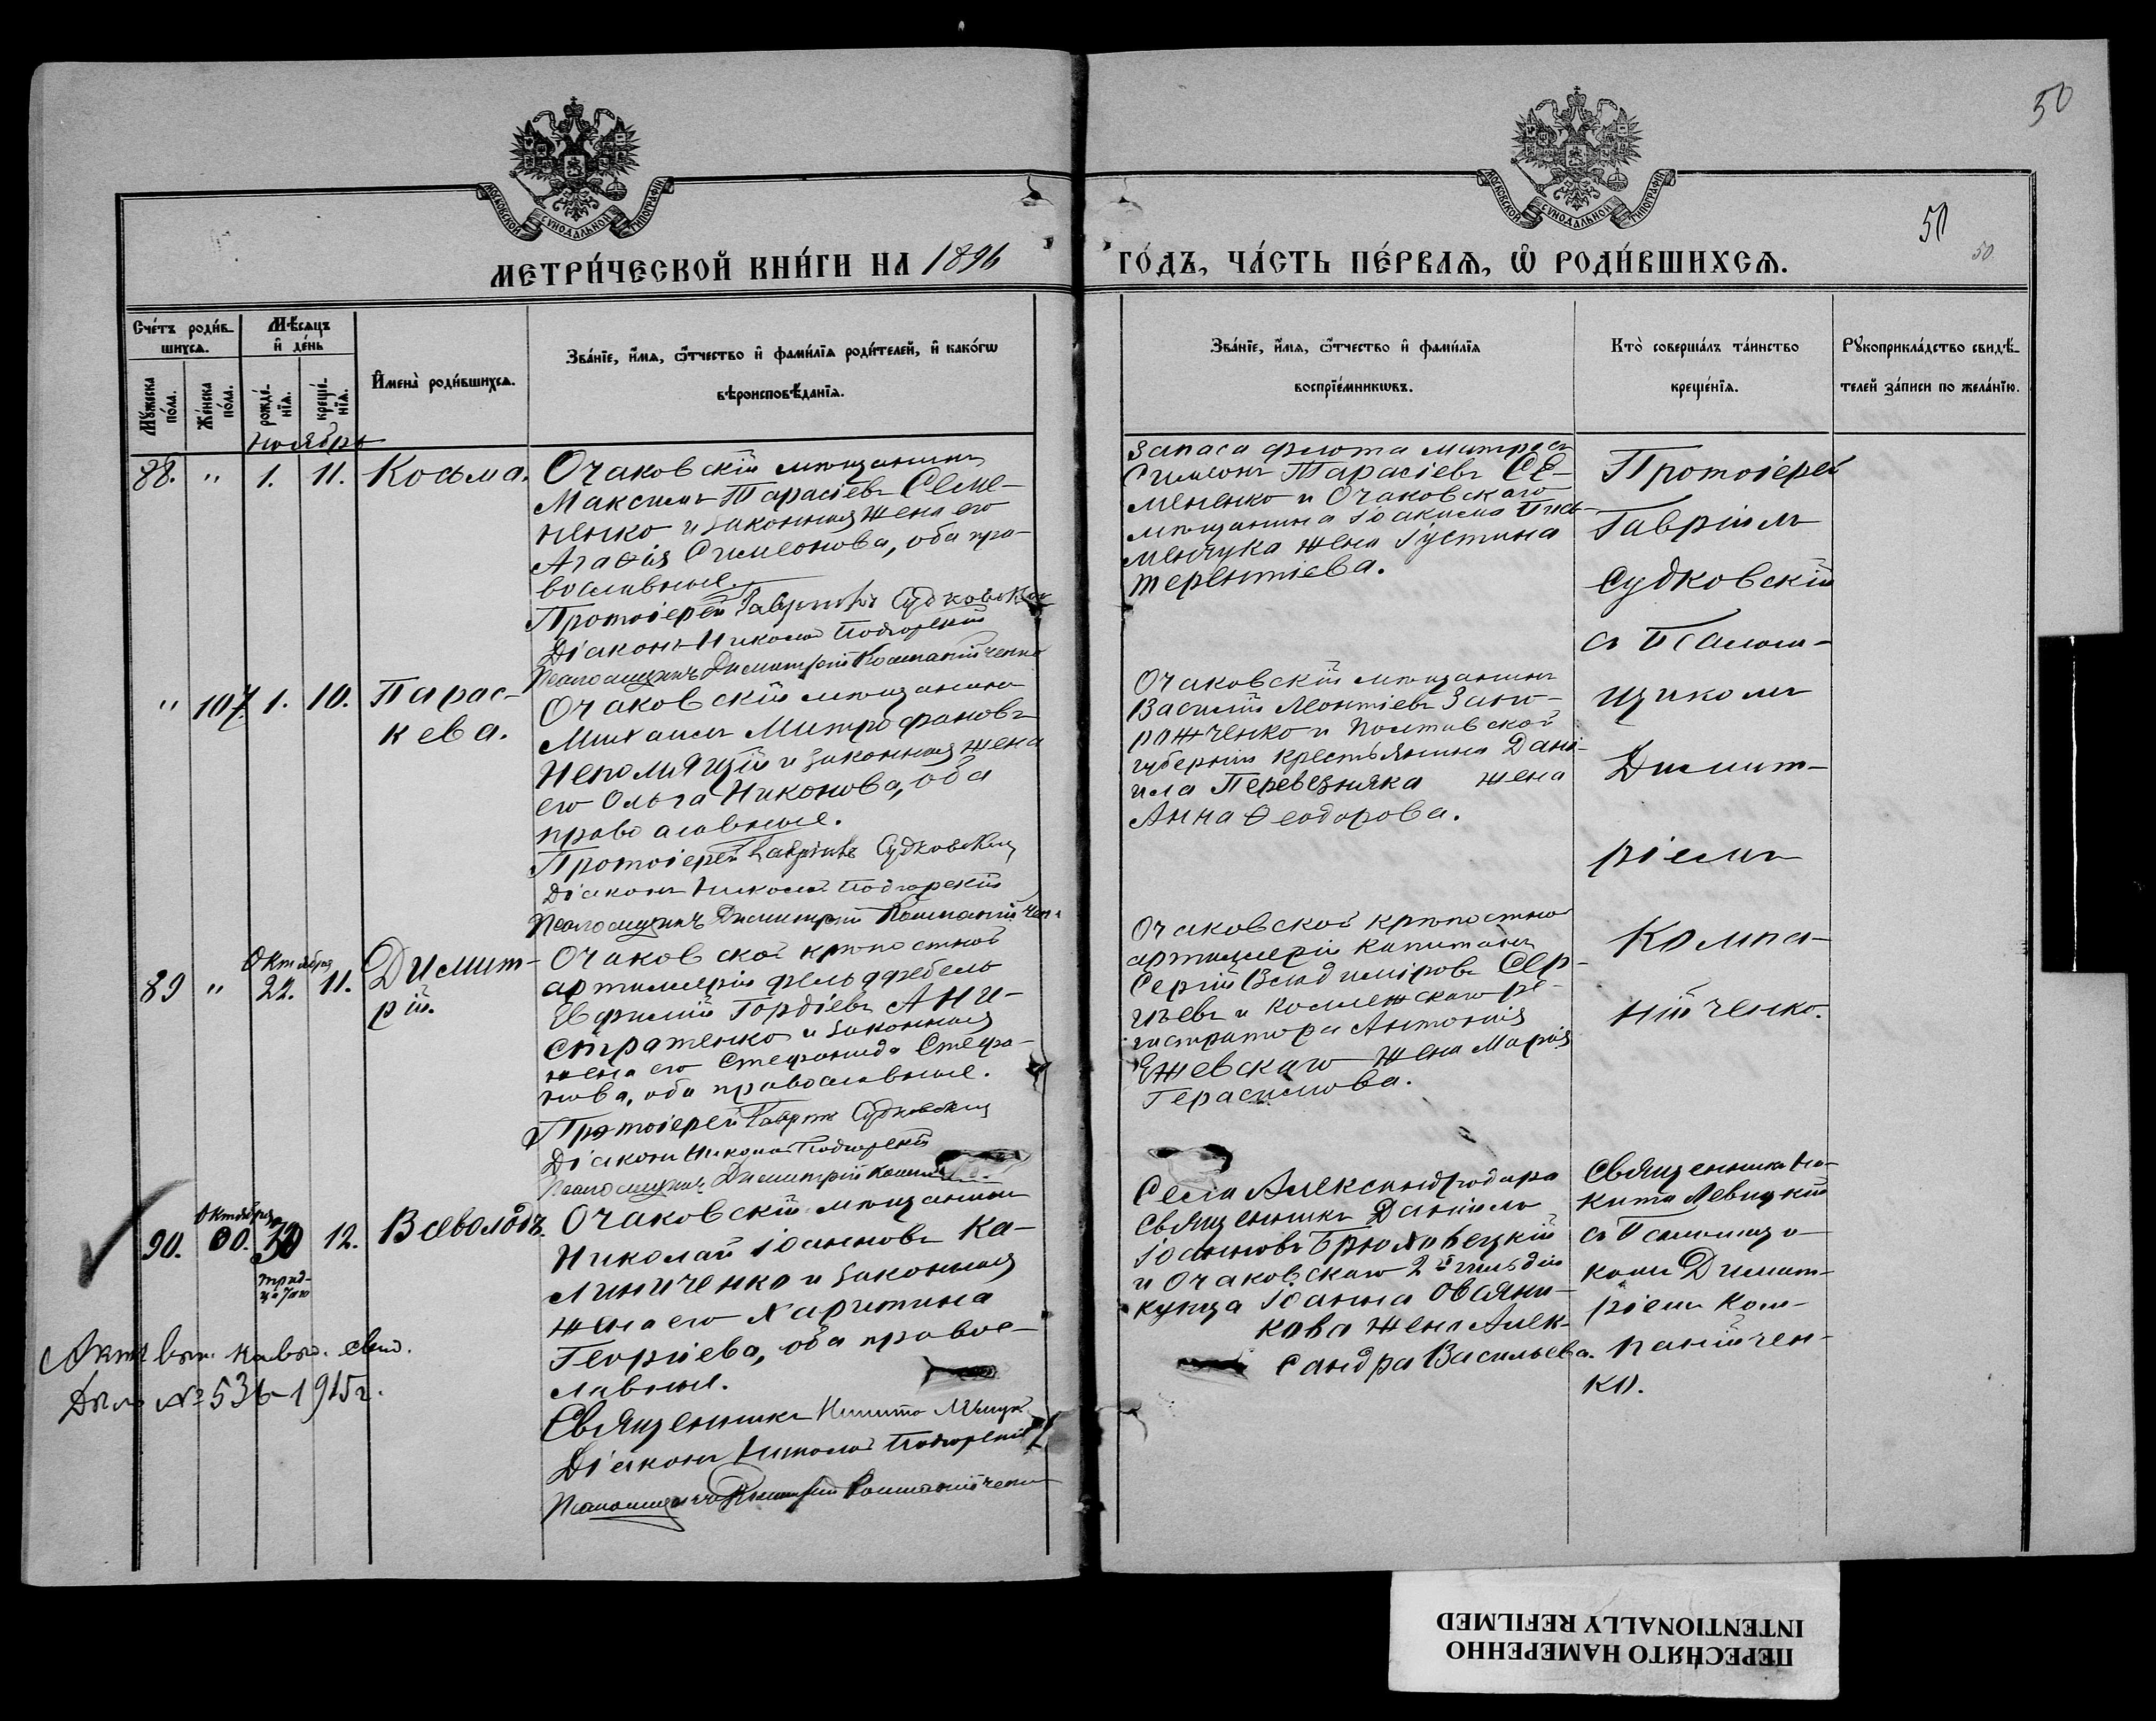 50
МОСКОВСКОЙ СѴНОДАЛЬНОЙ ТИПОГРАФІИ
МОСКОВСКОЙ СѴНОДАЛЬНОЙ ТИПОГРАФІИ
50
50
МЕТРИ́ЧЕСКОЙ КНИ́ГИ НА 1896
ГО́ДЪ, ЧА́СТЬ ПЕ́РВАѦ, Ѽ РОДИ́ВШИХСѦ.
Сче́тъ роди́в-
шихсѧ.
Мꙋ́жеска по́ла.
Же́нска по́ла.
Мѣ́сѧцъ
и҆ де́нь
рожде́-
нїѧ.
креще́-
нїѧ.
И҆мена̀ роди́вшихсѧ.
Зва́нїе, и҆́мѧ, ѻ҆́тчество и҆ фами́лїѧ роди́телей, и҆ како́гѡ
вѣроисповѣ́данїѧ.
Зва́нїе, и҆́мѧ, ѻ҆́тчество и҆ фами́лїѧ
воспрїе́мникѡвъ.
Кто̀ соверша́лъ та́инство
креще́нїѧ.
Рꙋкоприкла́дство свидѣ́-
телей за́писи по жела́нїю.
Ноябрь
88. " 1. 11. Косьма.
Очаковскій мѣщанинъ
Максимъ Тарасіевъ Семе-
ненко и законная жена его
Агаѳія Симеонова, оба пра-
вославные.
Протоіерей Гавріилъ Судковскій
Діаконъ Николай Подгорскій
Псаломщикъ Димитрій Компанійченко
Запаса флота матросъ
Симеонъ Тарасіевъ Се-
мененко и Очаковскаго
мѣщанина Іоакима Пись-
менчука жена Іустина
Терентіева.
Протоіерей
Гавріилъ
Судковскій
съ Псалом-
щикомъ
Димит-
ріемъ
Компа-
нійченко.
" 107. 1. 10. Парас-
кева.
Очаковскій мѣщанинъ
Михаилъ Митрофановъ
Непомнящій и законная жена
его Ольга Никонова, оба
православные.
Протоіерей Гавріилъ Судковскій
Діаконъ Николай Подгорскій
Псаломщикъ Димитрій Компанійчен.
Очаковскій мѣщанинъ
Василій Леонтіевъ Запо-
рожченко и Полтавской
губерніи крестьянина Дані-
ила Перевезняка жена
Анна Ѳеодорова.
Октября
89 " 22. 11. Димит-
рій.
Очаковской крѣпостной
артиллеріи фельдфебель
Евфимій Гордіевъ Ани-
стратенко и законная
жена его Стефанида Стефа-
нова, оба православные.
Протоіерей Гавріилъ Судковскій
Діаконъ Николай Подгорскій
Псаломщикъ Димитрій
Очаковской крѣпостной
артиллеріи капитанъ
Сергій Владиміровъ Сер-
гѣевъ и коллежскаго ре-
гистратора Антонія
Ежевскаго жена Марія
Герасимова.
Октября
90. 30 12. Всеволодъ.
трид-
цатаго
Очаковскій мѣщанинъ
Николай Іоанновъ Ка-
линиченко и законная
жена его Харитина
Георгіева, оба правос-
лавные.
Священникъ Никита Левицкій
Діаконъ Николай Подгорскій
Псаломщикъ Димитрій Компанійченко
Села Александродара
священникъ Даніилъ
Іоанновъ Брюховецкій
и Очаковскаго 2й гильдіи
купца Іоанна Овсяни-
кова жена Алек-
сандра Васильева.
Священникъ Ни-
кита Левицкій
съ Псаломщи-
комъ Димит-
ріемъ Ком-
панійчен-
ко.
Дѣло № 536-1915г.
ПЕРЕСНЯТО НАМЕРЕННО
INTENTIONALLY REFILMED